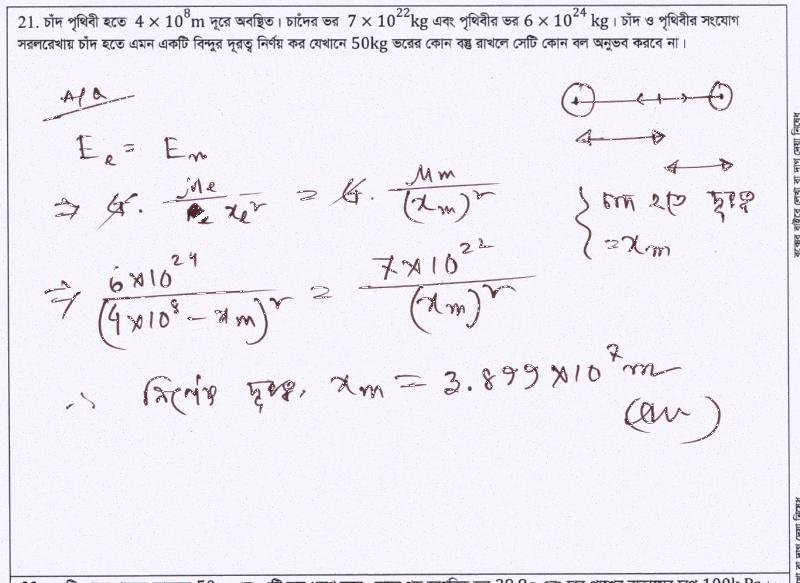 21. চাঁদ পৃথিবী হতে 4 × 10⁸m দূরে অবস্থিত। চাঁদের ভর 7 × 10²²kg এবং পৃথিবীর ভর 6 × 10²⁴ kg। চাঁদ ও পৃথিবীর সংযোগ
সরলরেখায় চাঁদ হতে এমন একটি বিন্দুর দূরত্ব নির্ণয় কর যেখানে 50kg ভরের কোন বস্তু রাখলে সেটি কোন বল অনুভব করবে না।
A/Q
E_e = E_m
⇒ G. M_e / x_e² = G. M_m / (x_m)²
চাঁদ হতে দূরত্ব
= x_m
⇒ 6×10²⁴ / (4×10⁸ − x_m)² = 7×10²² / (x_m)²
∴ নির্ণেয় দূরত্ব, x_m = 3.899×10⁷ m
(Ans)